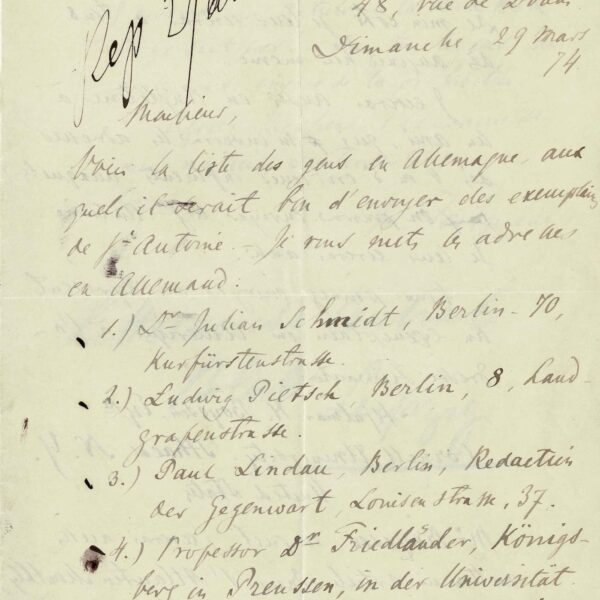 48, rue de Douai
Rep
Dimanche, 29 Mars
74.
Monsieur,
Voici la liste des gens en Allemagne aux
quels il serait bon d'envoyer des exemplaires
de St Antoine. – Je vous mets les adresses
en Allemand:
1.) Dr Julian Schmidt, Berlin – 70,
Kurfürstenstrasse.
2.) Ludwig Pietsch Berlin, 8, Land-
grafenstrasse.
3.) Paul Lindau Berlin, Redaction
der Gegenwart, Louisenstrasse, 37.
4.) Professor Dr Friedländer, Königs-
berg in Preussen, in der Universität.